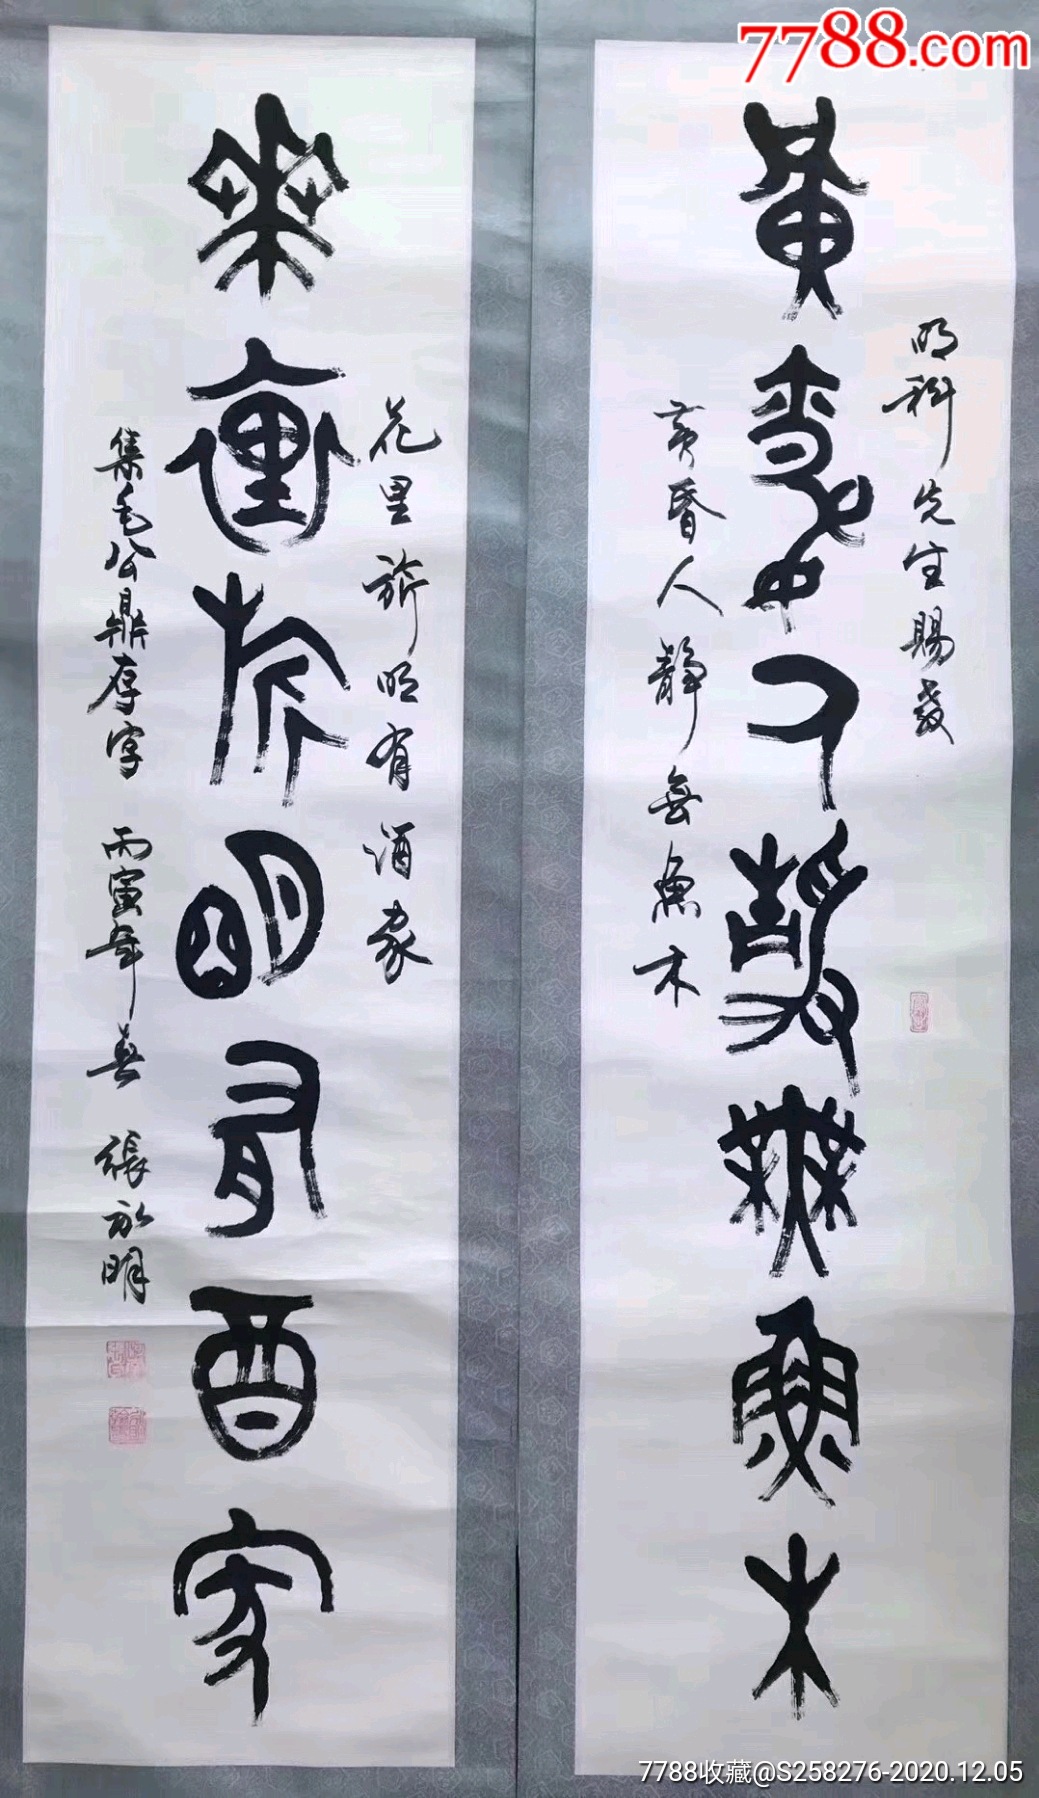 7788.com
黄昏人静無魚木
明科先生賜教
黄昏人靜無魚木
華裏旂明有酉家
花里旂明有酒家
集毛公鼎存字 丙寅年春 張永明
7788收藏@S258276-2020.12.05